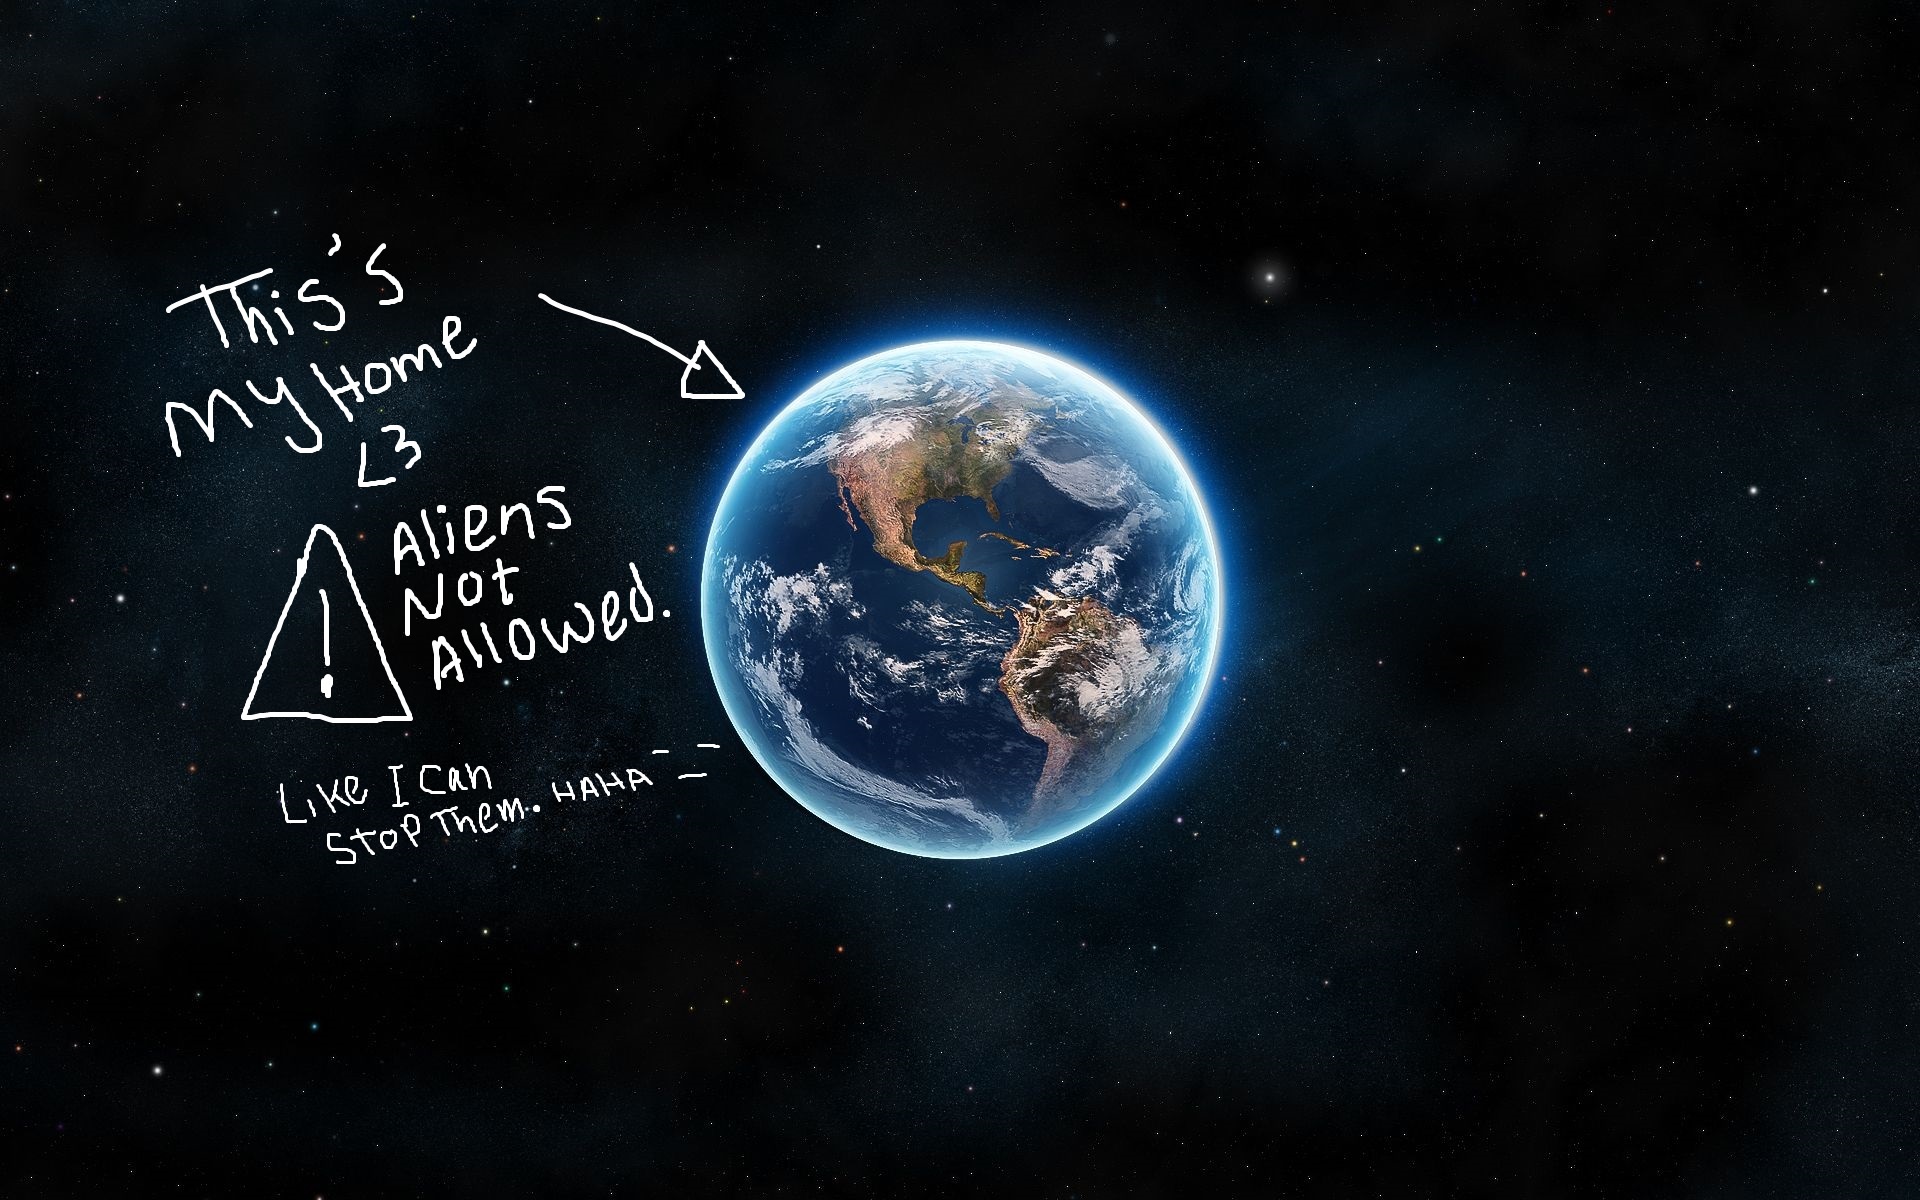 This's
My Home
<3
!
Aliens
Not
Allowed.
Like I Can
Stop Them. HAHA -_-